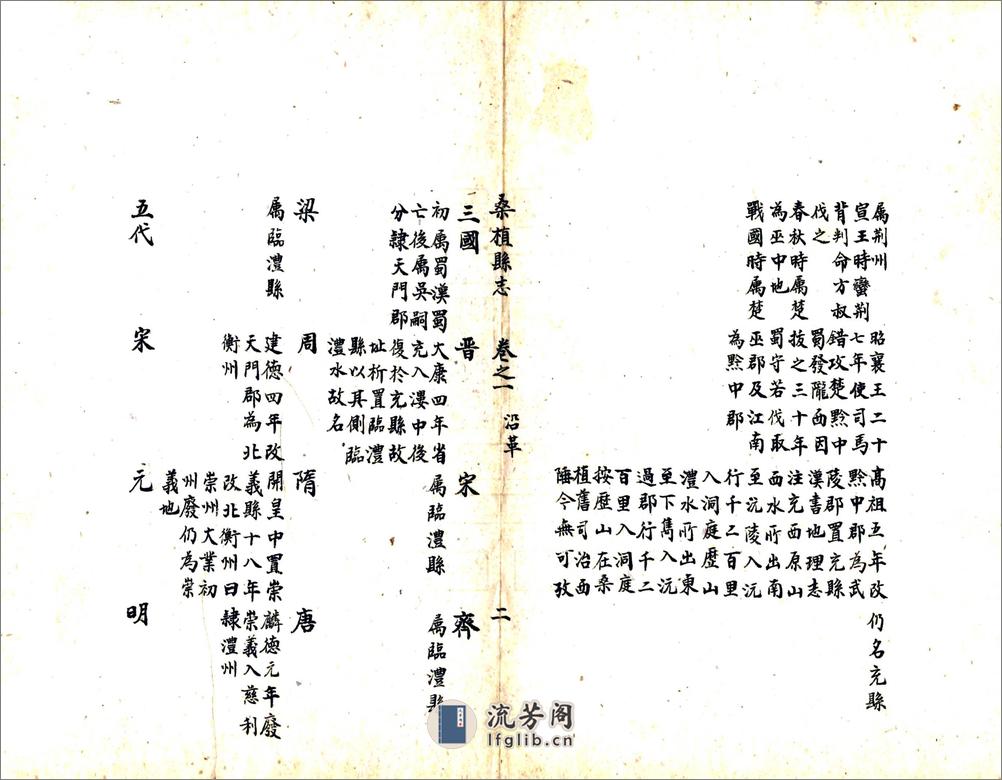 属荆州
宣王時蠻荆
背判命方叔
伐之
春秋時属楚
為巫中地
戰國時属楚
昭襄王二十
七年使司馬
錯攻楚黔中
蜀發隴西因
拔之三十年
蜀守若伐取
巫郡及江南
為黔中郡
髙祖五年改
黔中郡為武
陵郡置充縣
漢書地理志
注充酉原山
酉水所出南
至沅陵入沅
行千二百里
入洞庭歴山
澧水所出東
至下雋入沅
過郡行千二
百里入洞庭
按歴山在桑
植舊司治西
陲今無可攷
仍名充縣
桑植縣志
卷之一
沿革
二
三國
初属蜀漢蜀
亡後属吳嗣
分隸天門郡
晉
大康四年省
充入漊中後
復於充縣故
址析置臨澧
縣以其側臨
澧水故名
宋
属臨澧縣
齊
属臨澧縣
梁
属臨澧縣
周
建德四年改
天門郡為北
衡州
隋
開皇中置崇
義縣十八年
改北衡州曰
崇州大業初
州廢仍為崇
義地
唐
麟德元年廢
崇義入慈利
隸澧州
五代
宋
元
明
流芳阁
lfglib.cn